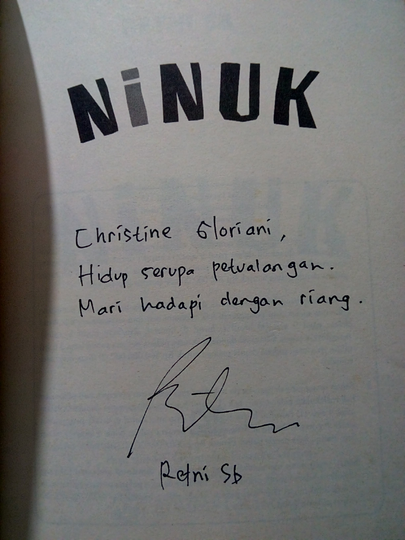 NiNUK
Christine Gloriani,
Hidup serupa petualangan.
Mari hadapi dengan riang.
Retni Sb